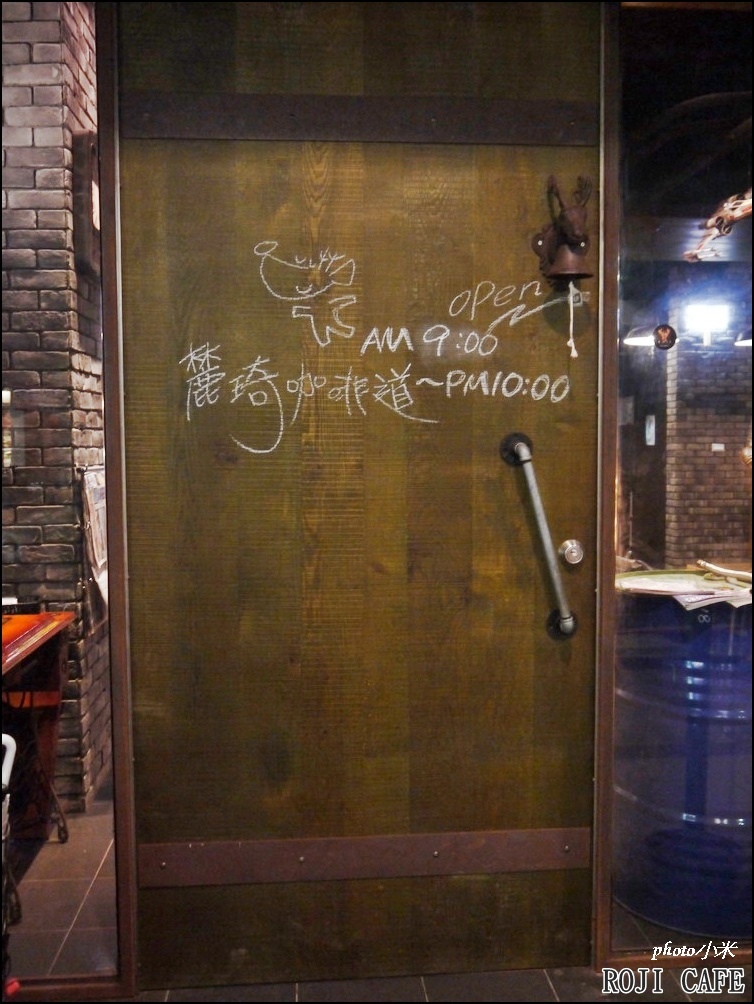 open
AM 9:00
麓琦咖啡道~PM10:00
photo/小米
ROJI CAFE